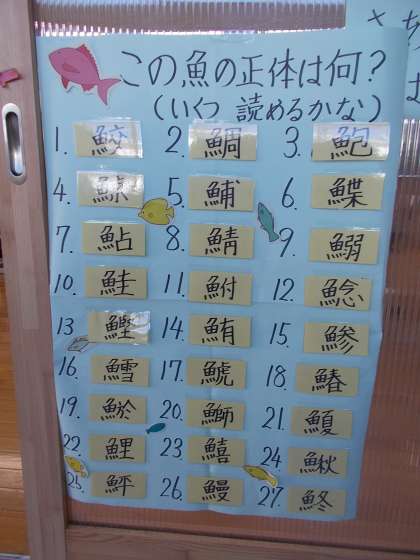 この魚の正体は何？
(いくつ 読めるかな)
1. 鮫 2. 鯛 3. 鮑
4. 5. 鯆 6. 鰈
7. 鮎 8. 鯖 9. 鰯
10. 鮭 11. 鮒 12. 鯰
13 鰹 14. 鮪 15. 鯵
16. 鱈 17. 鯱 18. 鰆
19. 鯲 20. 鰤 21.
22. 鯉 23 鱚 24. 鰍
25. 鮃 26. 鰻 27. 鮗